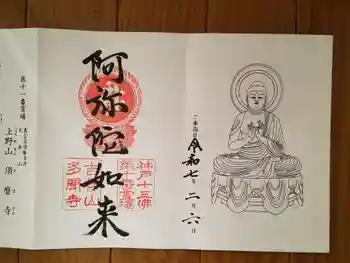 阿弥陀如来
神戸十三佛
第十番霊場
吉祥山
多聞寺
ご参拝日
令和七年二月六日
第十一番霊場
上野山 須磨寺